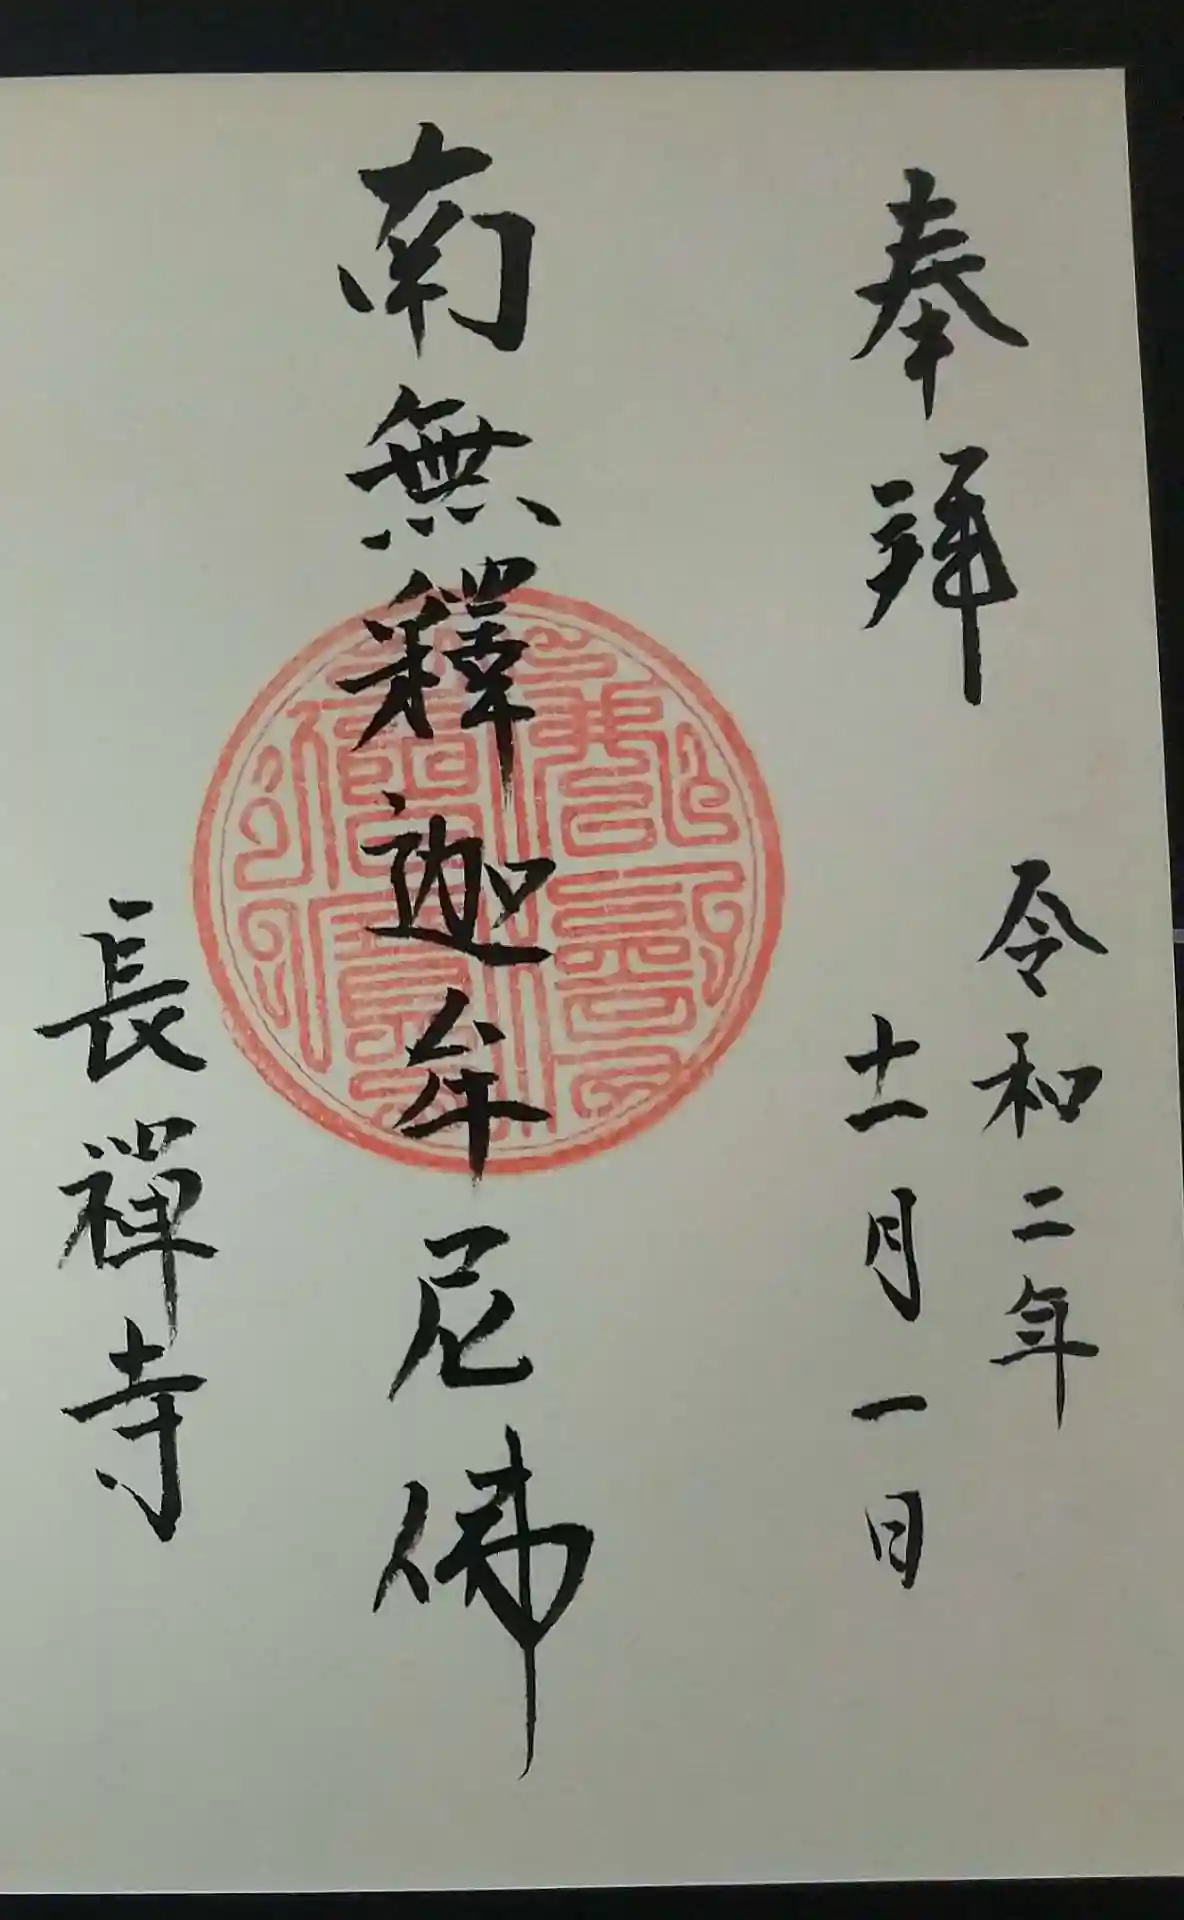 奉拜
令和二年
十一月一日
南無釋迦牟尼佛
長禪寺